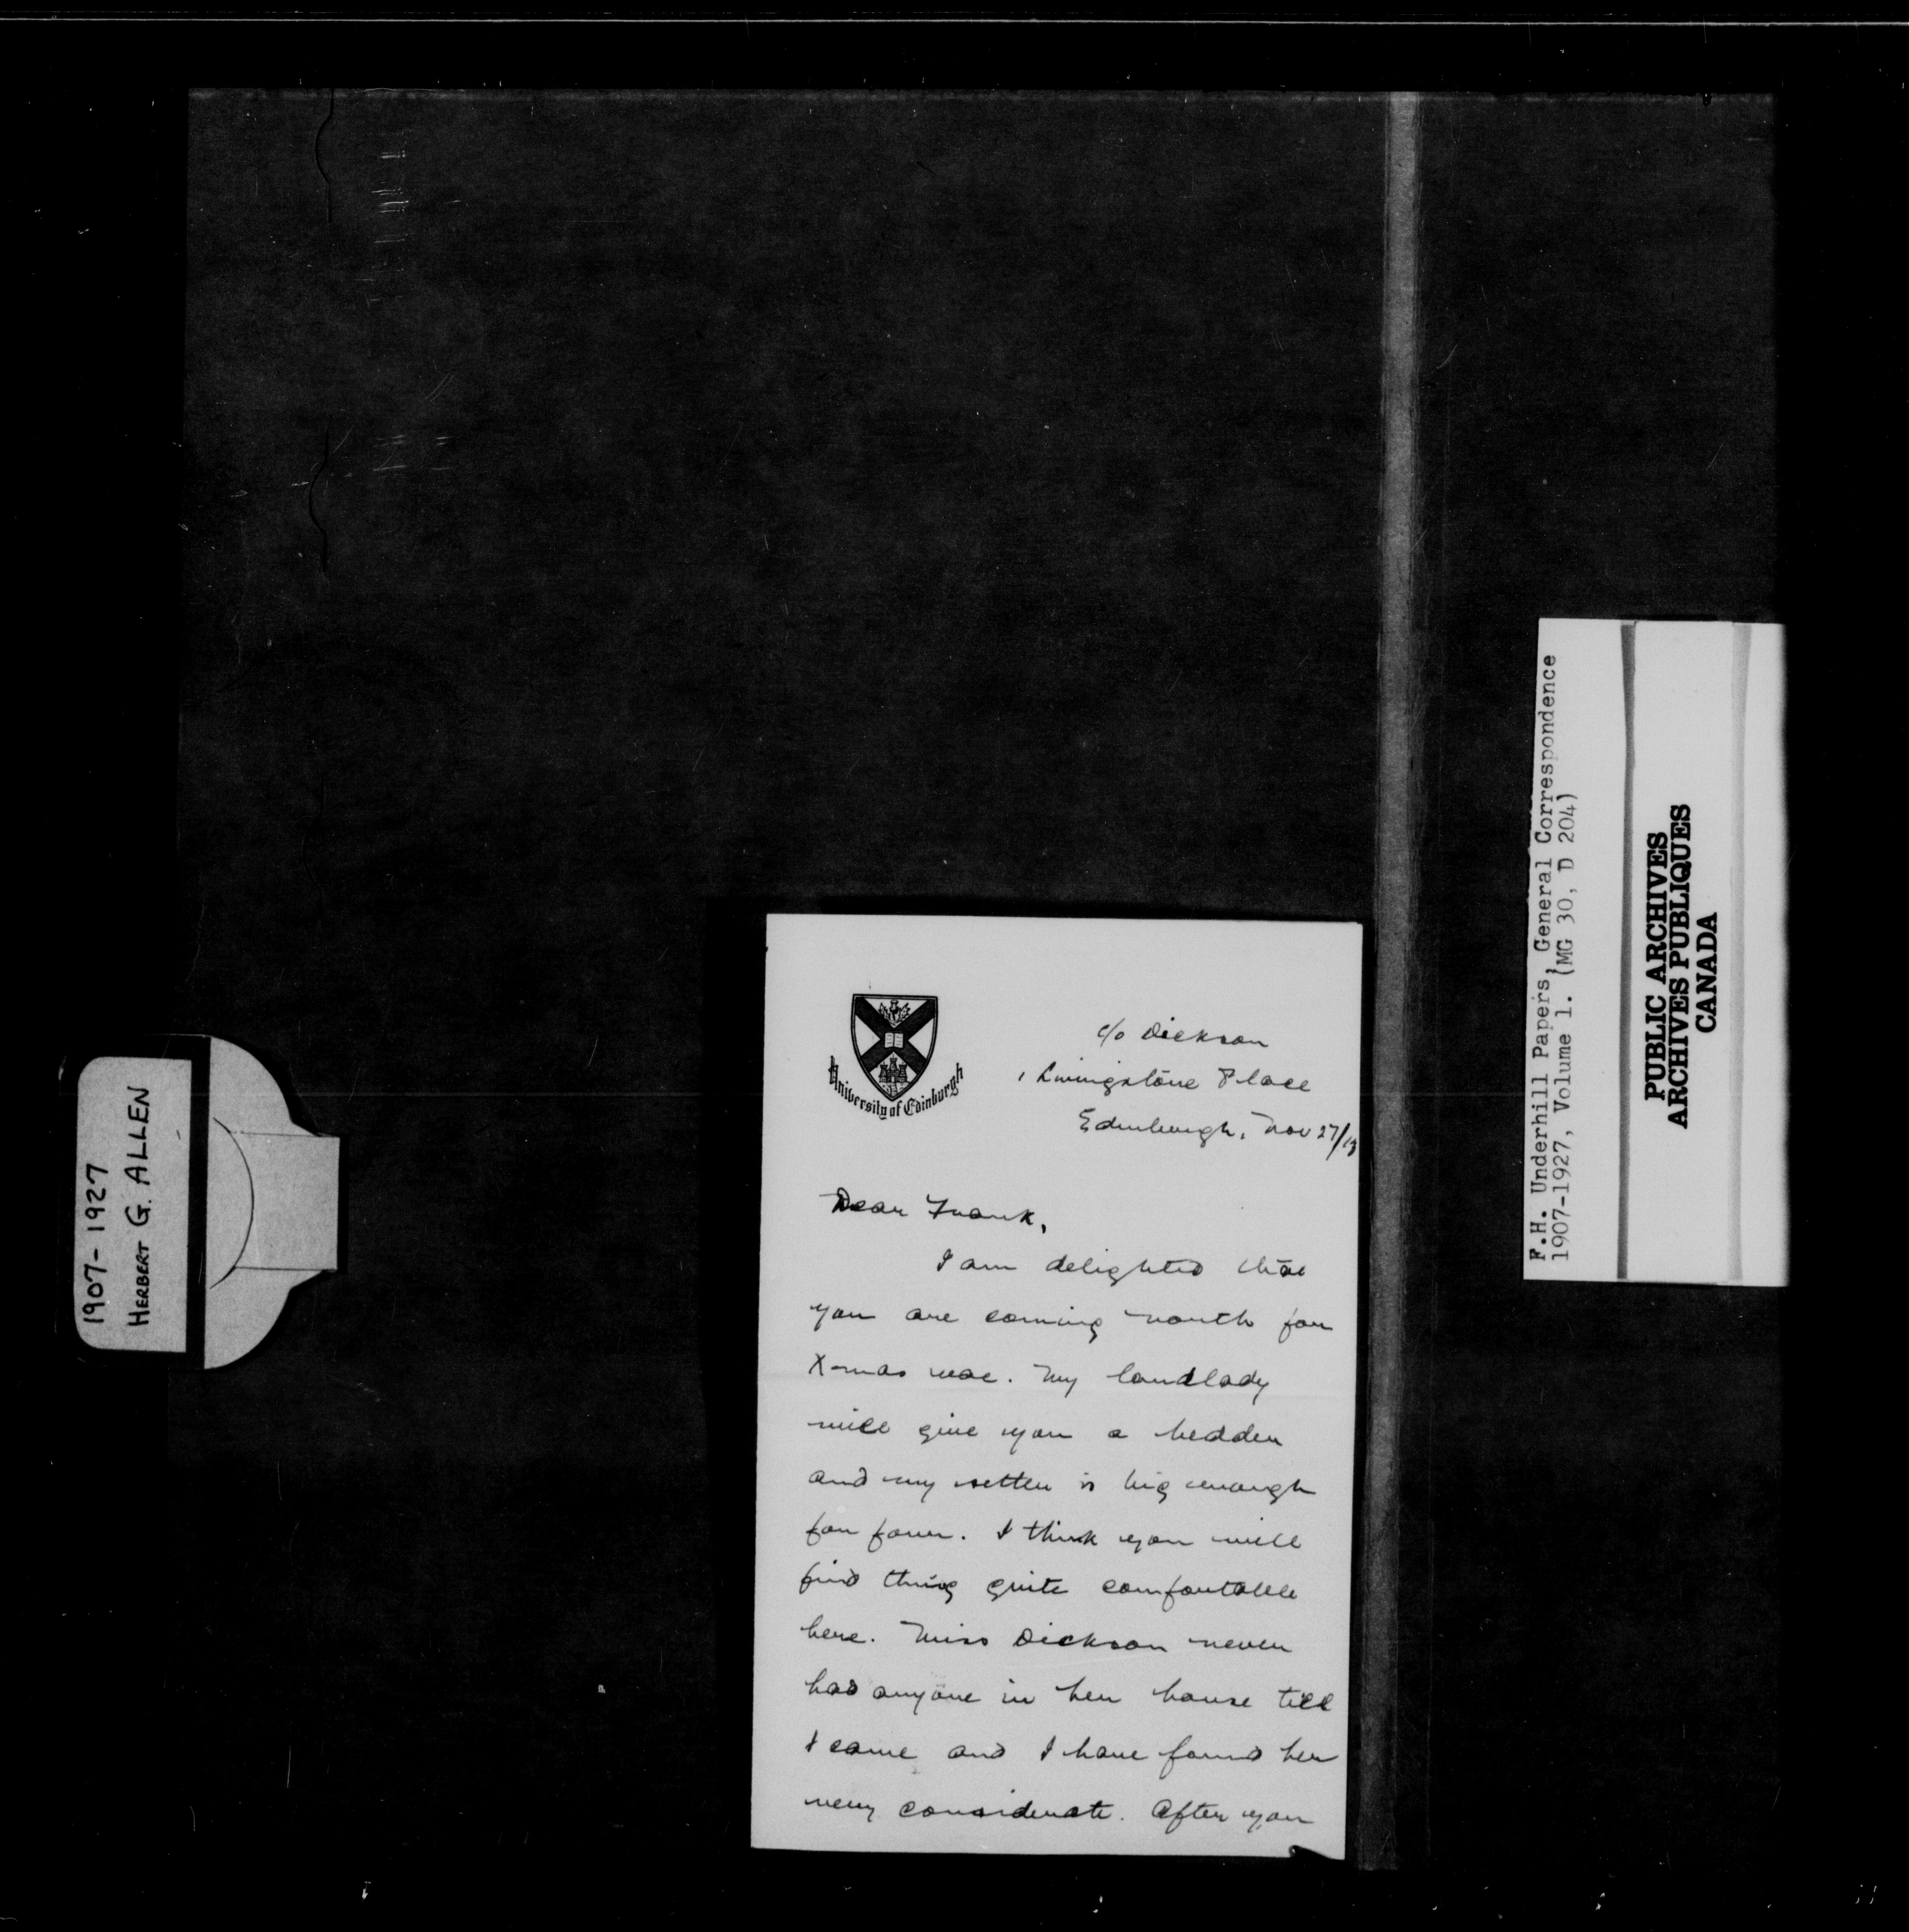 1907-1927
HERBERT G. ALLEN
University of Edinburgh
c/o Dickson
1 Livingstone Place
Edinburgh, Nov 27/13
Dear Frank,
I am delighted that
you are coming north for
X-mas vac. My landlady
will give you a bedder
and my setter is big enough
for four. I think you will
find thing quite comfortable
here. Miss Dickson never
had anyone in her house till
I came and I have found her
very considerate. After you
F.H. Underhill Papers, General Correspondence
1907-1927, Volume 1. (MG 30, D 204)
PUBLIC ARCHIVES
ARCHIVES PUBLIQUES
CANADA